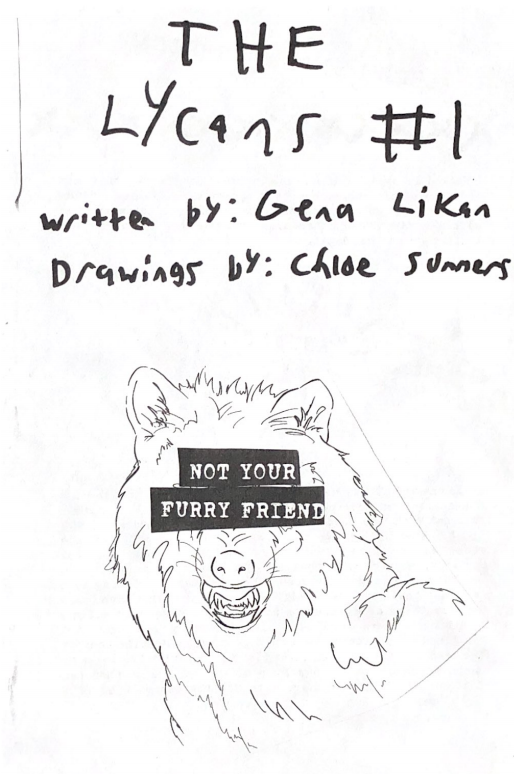 THE
LYcans #1
written by: Gena Likan
Drawings by: Chloe Sumners
NOT YOUR
FURRY FRIEND